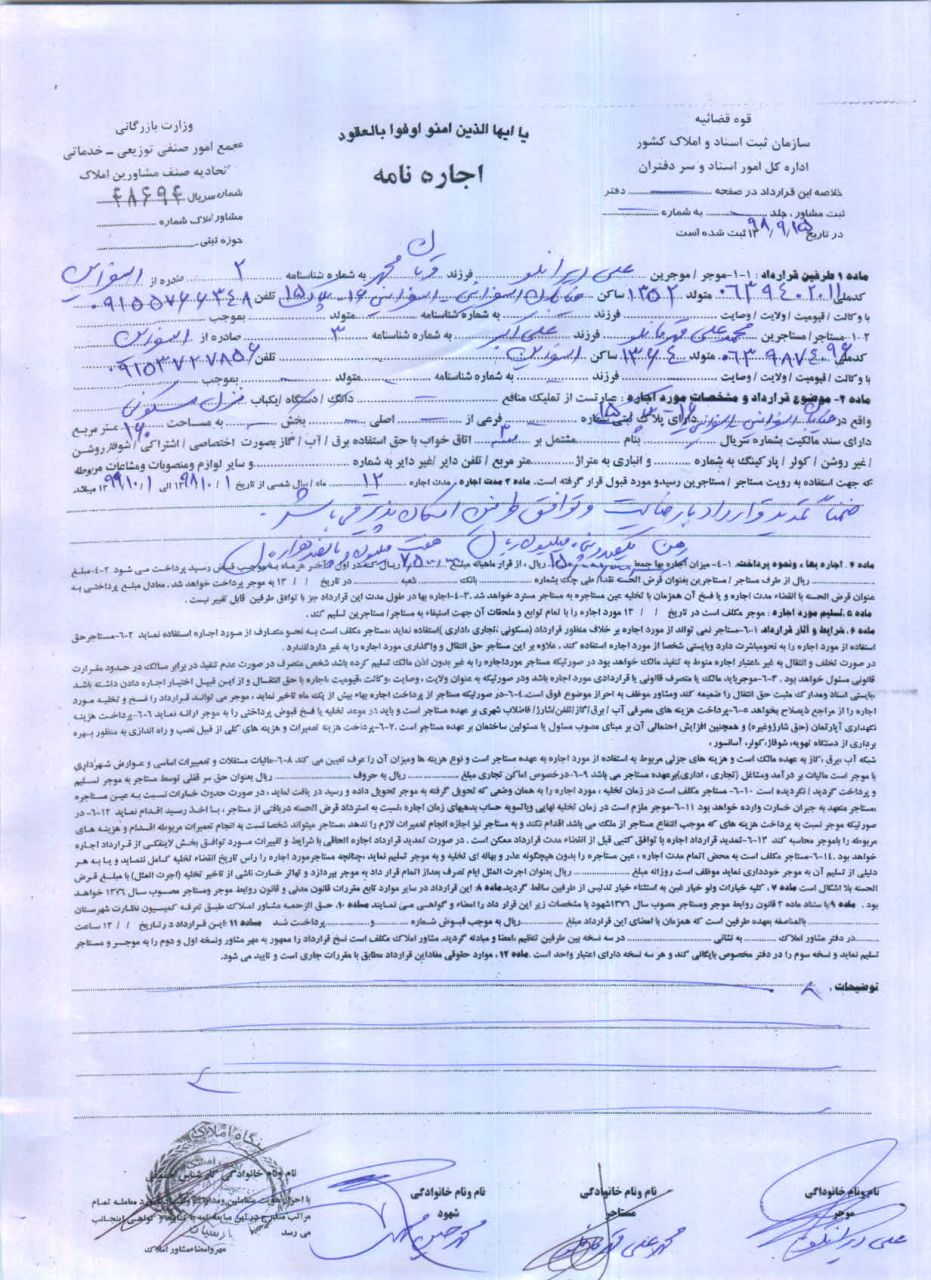 یا ایها الذین امنو اوفوا بالعقود
اجاره نامه
قوه قضائیه
سازمان ثبت اسناد و املاک کشور
اداره کل امور اسناد و سر دفتران
خلاصه این قرارداد در صفحه ........ دفتر
ثبت مشاور ، جلد ........ به شماره ........
در تاریخ ۹۸/۹/۱۵ ۱۳ ثبت شده است
وزارت بازرگانی
مجمع امور صنفی توزیعی ـ خدماتی
اتحادیه صنف مشاورین املاک
شماره سریال ۴۸۶۹۴
مشاور املاک شماره ........
حوزه ثبتی ........
ماده ۱ طرفین قرارداد : ۱-۱-موجر / موجرین علی دیرانلو فرزند قربان محمد به شماره شناسنامه ۲ صادره از اسفراین
کدملی ۰۶۳۹۴۰۲۰۱۱ متولد ۱۳۵۲ ساکن خیابان اسفراینی تلفن ۰۹۱۵۵۷۶۶۳۴۸
با وکالت / قیومیت / ولایت / وصایت ........ فرزند ........ به شماره شناسنامه ........ متولد ........ بموجب
۱-۲-مستاجر / مستاجرین محمدعلی فرزند علی اکبر به شماره شناسنامه ۳ صادره از اسفراین
کدملی متولد ۱۳۶۴ ساکن اسفراین تلفن ۰۹۱۵۳۷۲۷۸۵۶
با وکالت / قیومیت / ولایت / وصایت ........ فرزند ........ به شماره شناسنامه ........ متولد ........ بموجب
ماده ۲- موضوع قرارداد و مشخصات مورد اجاره : عبارتست از تملیک منافع ........ دانگ / دستگاه / یکباب منزل مسکونی
واقع در خیابان اسفراینی دارای پلاک ثبتی شماره ........ فرعی از ........ اصلی ........ بخش ........ به مساحت ۱۶۰ متر مربع
دارای سند مالکیت بشماره سریال ........ بنام ........ مشتمل بر ۳ اتاق خواب با حق استفاده برق / آب / گاز بصورت اختصاصی / اشتراکی / شوفاژ روشن
/ غیر روشن / کولر / پارکینگ به شماره ........ و انباری به متراژ ........ متر مربع / تلفن دایر /غیر دایر به شماره ........ و سایر لوازم ومنصوبات ومشاعات مربوطه
که جهت استفاده به رویت مستاجر / مستاجرین رسیدو مورد قبول قرار گرفته است. ماده ۳ مدت اجاره : مدت اجاره ۱۲ ماه / سال شمسی از تاریخ ۹۸/۱۰/۱ الی ۹۹/۱۰/۱ میباشد
ضمناً تمدید قرارداد با رضایت و توافق طرفین امکان پذیر می باشد
رهن یکصد و پنجاه میلیون ریال هفت میلیون و پانصد هزار ریال
ماده ۴. اجاره بها ، ونحوه پرداخت: ۴-۱- میزان اجاره بها جمعا ریال ، از قرار ماهیانه مبلغ ریال که در اول / آخر هرماه به موجب قبض رسید پرداخت می شود ۴-۲-مبلغ
........ ریال از طرف مستاجر / مستاجرین بعنوان قرض الحسنه نقدا/ طی چک بشماره ........ بانک ........ شعبه ........ در تاریخ / / ۱۳ به موجر پرداخت خواهد شد. معادل مبلغ پرداختی به
عنوان قرض الحسنه با انقضاء مدت اجاره و یا فسخ آن همزمان با تخلیه عین مستاجره به مستاجر مسترد خواهد شد. ۴-۳-اجاره بها در طول مدت این قرارداد جز با توافق طرفین قابل تغییر نیست .
ماده ۵. تسلیم مورد اجاره : موجر مکلف است در تاریخ / / ۱۳ مورد اجاره را با تمام توابع و ملحقات آن جهت استیفاء به مستاجر/ مستاجرین تسلیم کند.
ماده ۶. شرایط و آثار قرارداد: ۶-۱-مستاجر نمی تواند از مورد اجاره بر خلاف منظور قرارداد (مسکونی ،تجاری ،اداری )استفاده نماید ،مستاجر مکلف است به نحو متعارف از مورد اجاره استفاده نماید ۶-۲-مستاجرحق
استفاده از مورد اجاره را به نحومباشرت دارد وبایستی شخصا از مورد اجاره استفاده کند. علاوه بر این مستاجر حق انتقال و واگذاری مورد اجاره را به غیر دارد/ندارد .
در صورت تخلف و انتقال به غیر ،اعتبار اجاره منوط به تنفیذ مالک خواهد بود در صورتیکه مستاجر مورداجاره را به غیر بدون اذن مالک تسلیم کرده باشد شخص متصرف در صورت عدم تنفیذ در برابر مالک در حدود مقررات
قانونی مسئول خواهد بود . ۶-۳-موجرباید مالک یا متصرف قانونی یا قراردادی مورد اجاره باشد ودر صورتیکه به عنوان ولایت ، وصایت ،وکالت ،قیومیت ،اجاره با حق انتقال و از این قبیل اختیار اجاره دادن داشته باشد
،بایستی اسناد ومدارک مثبت حق انتقال را ضمیمه کند ومشاور موظف به احراز موضوع فوق است.۶-۴-در صورتیکه مستاجر از پرداخت اجاره بهاء بیش از یک ماه تاخیر نماید ، موجر می تواند قرارداد را فسخ و تخلیه مورد
اجاره را از مراجع ذیصلاح بخواهد ۶-۵-پرداخت هزینه های مصرفی آب / برق /گاز/تلفن/شارژ/ فاضلاب شهری بر عهده مستاجر است و باید در موعد تخلیه یا فسخ قبوض پرداختی را به موجر ارائه نماید ۶-۶-پرداخت هزینه
نگهداری آپارتمان (حق شارژوغیره) و همچنین افزایش احتمالی آن بر مبنای مصوب مسئول یا مسئولین ساختمان بر عهده مستاجر است .۶-۷-پرداخت هزینه تعمیرات و هزینه های کلی از قبیل نصب و راه اندازی به منظور بهره
برداری از دستگاه تهویه، شوفاژ،کولر، آسانسور ،
شبکه آب ،برق ،گاز به عهده مالک است و هزینه های جزئی مربوط به استفاده از مورد اجاره به عهده مستاجر است و نوع هزینه ها ومیزان آن را عرف تعیین می کند ۶-۸-مالیات مستقلات و تعمیرات اساسی و عوارض شهرداری
با موجر است مالیات بر درآمد ومشاغل (تجاری ، اداری )برعهده مستاجر می باشد ۶-۹-درخصوص اماکن تجاری مبلغ ........ ریال به حروف ........ ریال بعنوان حق سر قفلی توسط مستاجر به موجر تسلیم
و پرداخت گردید / نگردیده است .۶-۱۰-مستاجر مکلف است در زمان تخلیه ، مورد اجاره را به همان وضعی که تحویل گرفته به موجر تحویل داده و رسید در یافت نماید ، در صورت حدوث خسارات نسبت به عین مستاجره
،مستاجر متعهد به جبران خسارت وارده خواهد بود .۶-۱۱-موجر ملزم است در زمان تخلیه نهایی وباتسویه حساب بدهیهای زمان اجاره ،نسبت به استرداد قرض الحسنه دریافتی از مستاجر ، با اخذ رسید اقدام نماید ۶-۱۲-در
صورتیکه موجر نسبت به پرداخت هزینه های که موجب انتفاع مستاجر از ملک می باشد اقدام نکند و به مستاجر نیز اجازه انجام تعمیرات لازم را ندهد ،مستاجر میتواند شخصا نسبت به انجام تعمیرات مربوطه اقدام و هزینه های
مربوطه را باموجر محاسبه کند ۶-۱۳-تمدید قرارداد اجاره با توافق کتبی قبل از انقضاء مدت قرارداد ممکن است . در صورت تمدید قرارداد اجاره الحاقی با شرایط و تغییرات مورد توافق بخش لاینفکی از قرارداد اجاره
خواهد بود .۶-۱۴-مستاجر مکلف است به محض اتمام مدت اجاره ، عین مستاجره را بدون هیچگونه عذر و بهانه ای تخلیه و به موجر تسلیم نماید ،چنانچه مستاجرمورد اجاره را راس تاریخ انقضاء تخلیه کامل ننماید و یا به هر
دلیلی از تسلیم آن به موجر خودداری نماید موظف است روزانه مبلغ ........ ریال بعنوان اجرت المثل ایام تصرف بعداز اتمام قرار داد به موجر بپردازد و تهاتر خسارت ناشی از تاخیر تخلیه (اجرت المثل) با مبلغ قرض
الحسنه بلا اشکال است ماده ۷. کلیه خیارات ولو خیار غبن به استثناء خیار تدلیس از طرفین ساقط گردید.ماده ۸: این قرارداد در سایر موارد تابع مقررات قانون مدنی و قانون روابط موجر ومستاجر مصوب سال ۱۳۷۶ خواهد
بود . ماده ۹ با ستناد ماده ۲ قانون روابط موجر ومستاجر مصوب سال ۱۳۷۶شهود با مشخصات زیر این قرار داد را امضاء و گواهی می نمایند ماده ۱۰. حق الزحمه مشاور املاک طبق تعرفه کمیسیون نظارت شهرستان
........ بالمناصفه بعهده طرفین است که همزمان با امضای این قرارداد مبلغ ........ ریال به موجب قبوض شماره ........و........ پرداخت شد ماده ۱۱ :این قرارداد درتاریخ / / ۱۳ ساعت
........در دفتر مشاور املاک ........ به نشانی ........ در سه نسخه بین طرفین تنظیم ،امضا و مبادله گردید. مشاور املاک مکلف است نسخ قرارداد را ممهور به مهر مشاور ونسخه اول و دوم را به موجر و مستاجر
تسلیم نماید و نسخه سوم را در دفتر مخصوص بایگانی کند و هر سه نسخه دارای اعتبار واحد است . ماده ۱۲ . موارد حقوقی مفاداین قرارداد مطابق با مقررات جاری است و تایید می شود.
توضیحات .
نام ونام خانوادگی
موجر
علی دیرانلو
نام ونام خانوادگی
مستاجر
محمدعلی
نام ونام خانوادگی
شهود
محمد حسین
نام ونام خانوادگی کارشناس
با احراز هویت متعاملین معامله تمام
مراتب مندرج دراین مبایعه نامه گواهی اینجانب
می رسد
مهر وامضاءمشاور املاک
بنگاه املاک
پارسیان